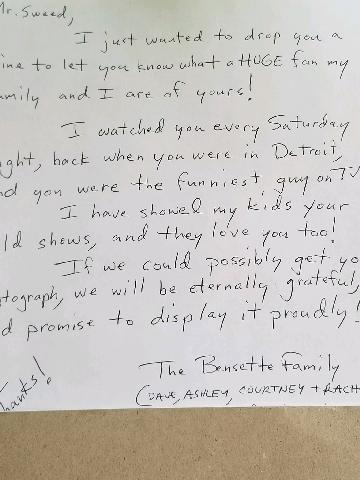 Mr. Sweed,
I just wanted to drop you a
ine to let you know what a HUGE fan my
amily and I are of yours!
I watched you every Saturday
ght, back when you were in Detroit,
nd you were the funniest guy on TV
I have showed my kids your
ld shows, and they love you too!
If we could possibly get yo
tograph, we will be eternally grateful,
d promise to display it proudly!
Thanks!
The Bensette Family
(DAVE, ASHLEY, COURTNEY + RACH